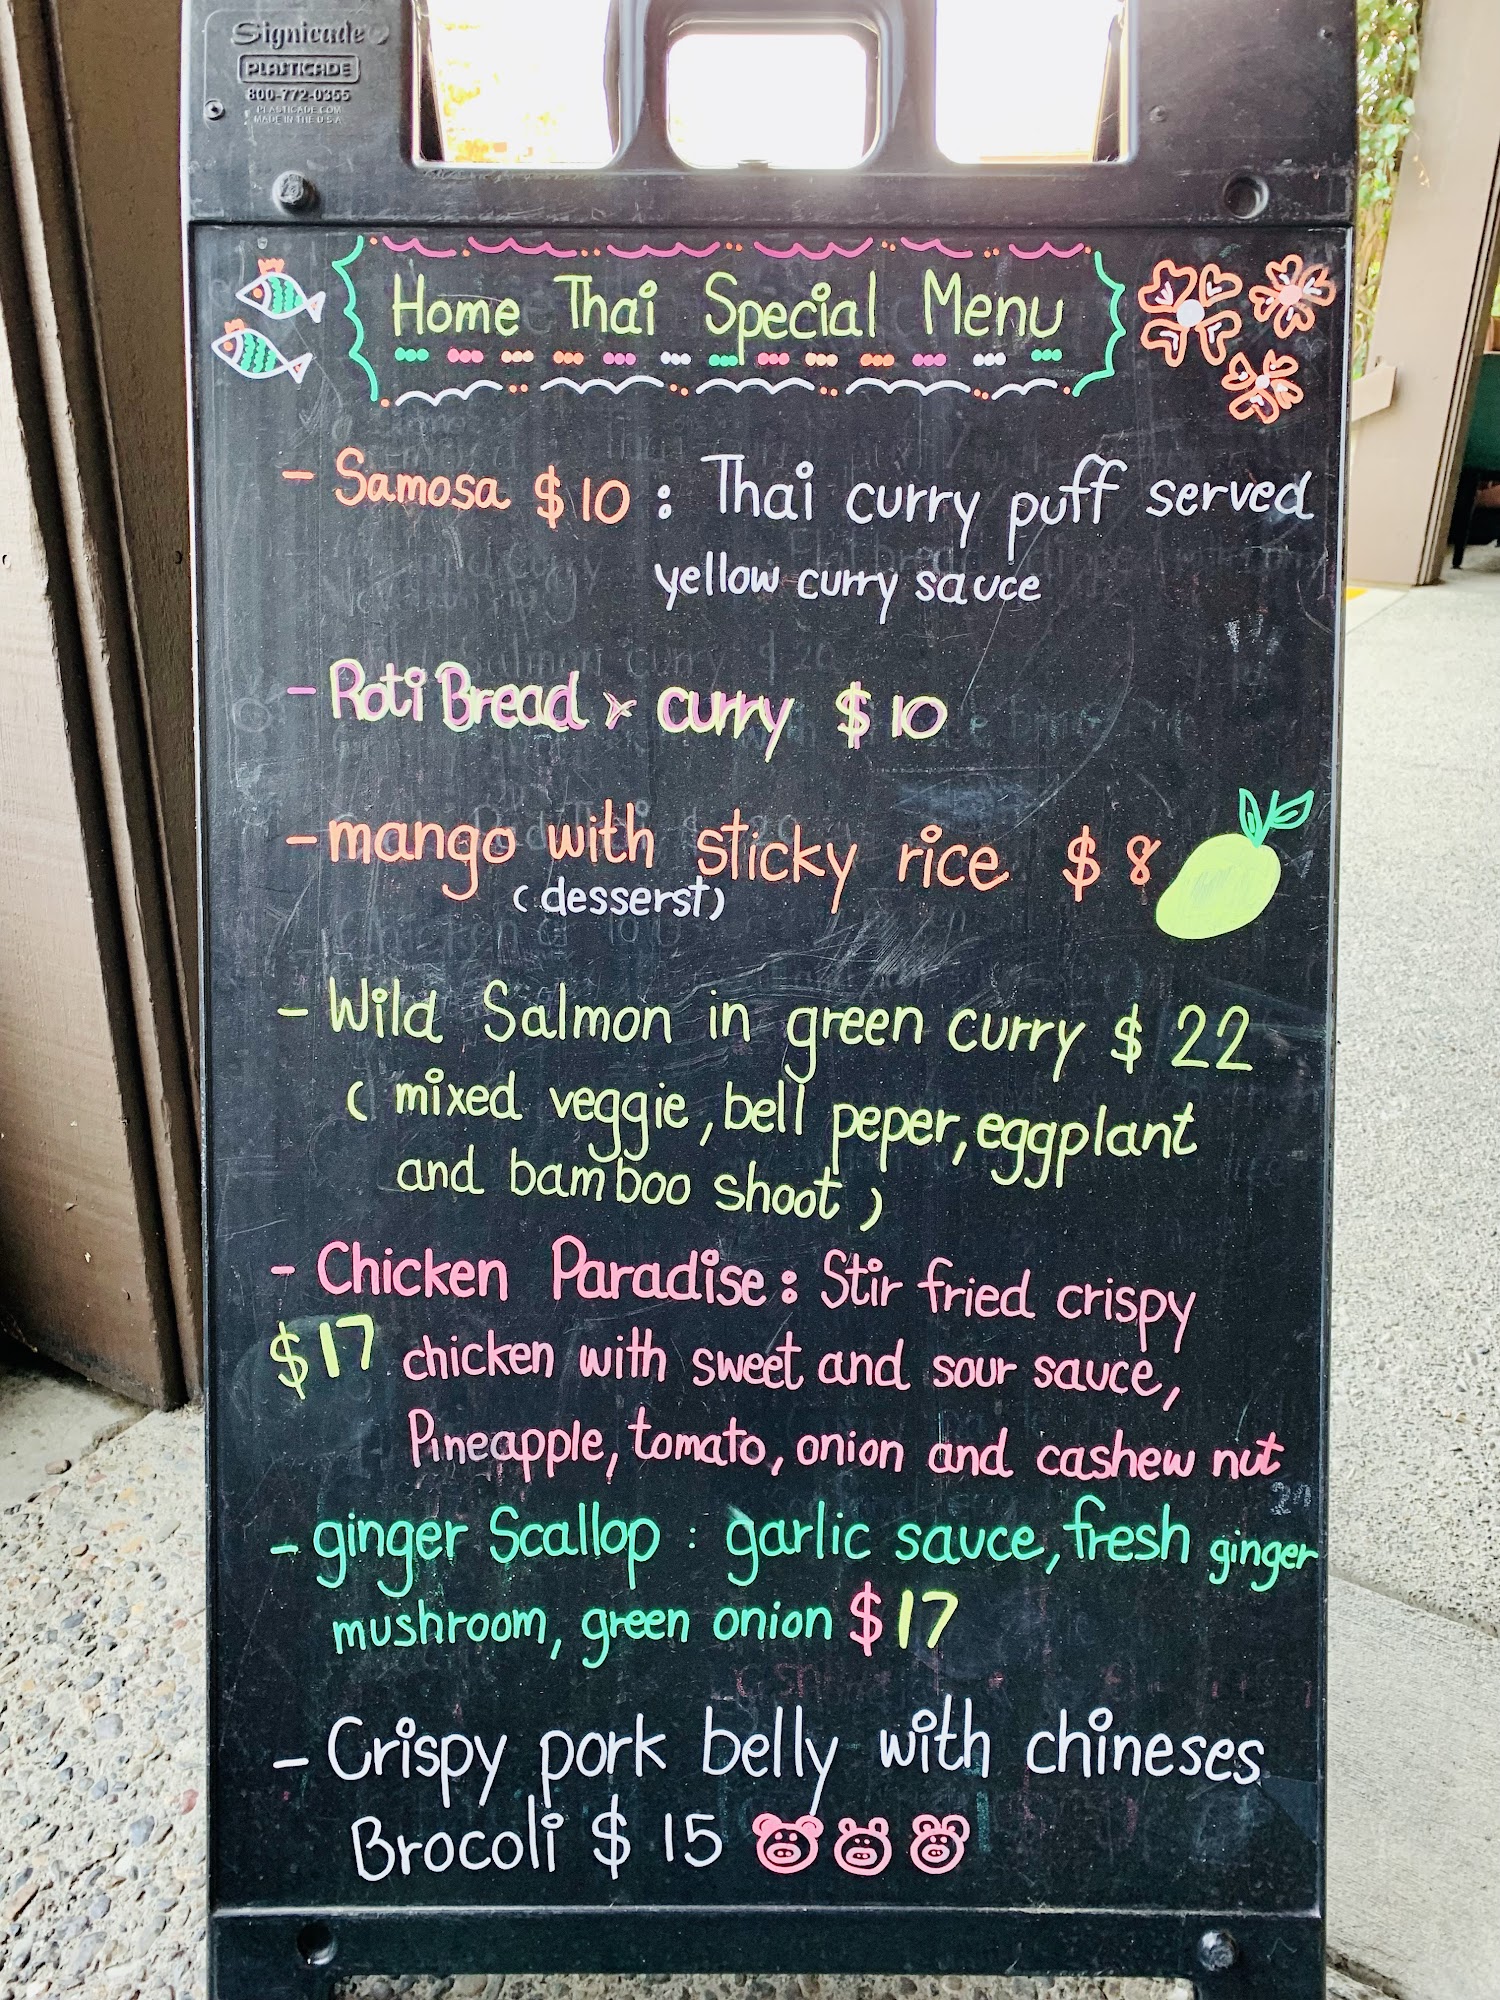 Signicade
PLASTICADE
800-772-0355
PLASTICADE.COM
MADE IN THE U.S.A
Home Thai Special Menu
- Samosa $10 : Thai curry puff served
yellow curry sauce
- Roti Bread > curry $10
- mango with sticky rice $8
(desserst)
- Wild Salmon in green curry $22
( mixed veggie, bell peper, eggplant
and bamboo shoot )
- Chicken Paradise : Stir fried crispy
$17 chicken with sweet and sour sauce,
Pineapple, tomato, onion and cashew nut
- ginger Scallop : garlic sauce, fresh ginger
mushroom, green onion $17
- Crispy pork belly with chineses
Brocoli $15